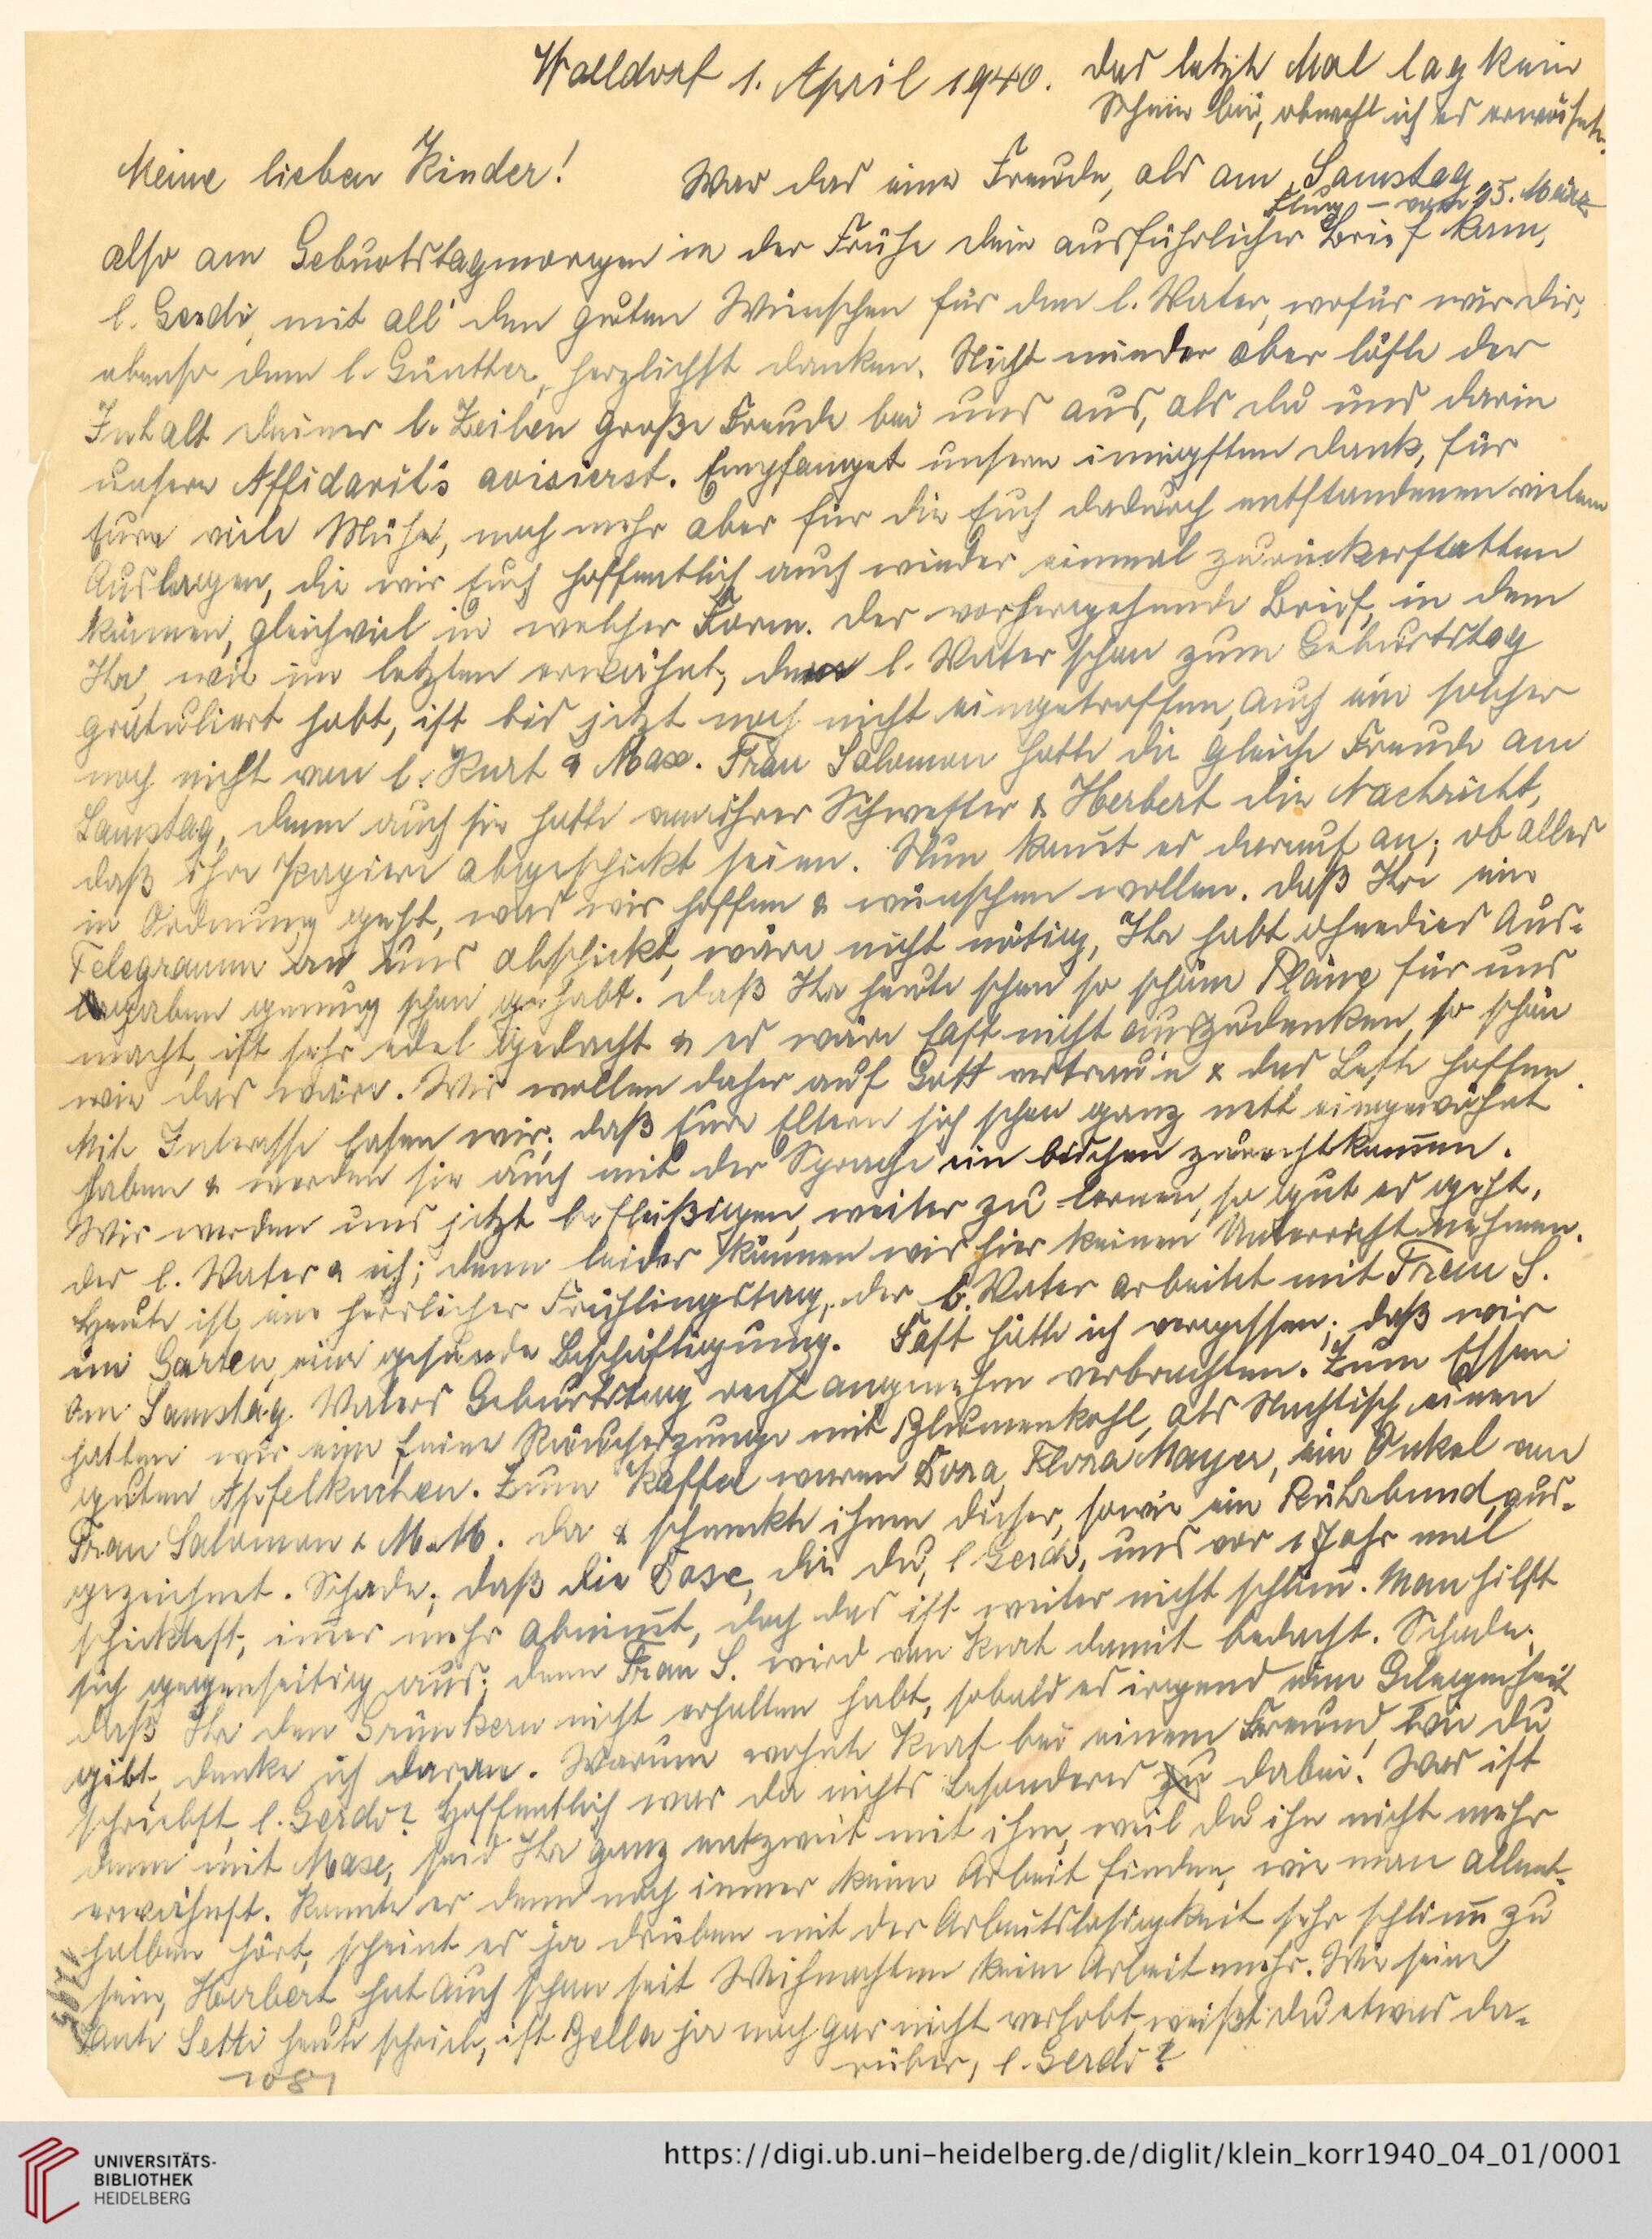 Walldorf 1. April 1940. Das letzte Mal lag kein
Schein bei, obwohl ich es erwähnte.
Meine lieben Kinder! War das eine Freude, als am Samstag
Flug – vom 15. März
also am Geburtstagmorgen in der Frühe dein ausführlicher Brief kam,
l. Gerdi, mit all' den guten Wünschen für den l. Vater, wofür wir dir,
ebenso dem l. Günther, herzlichst danken. Nicht minder aber löste der
Inhalt deiner l. Zeilen große Freude bei uns aus, als du uns darin
unsere Affidavit's avisierst. Empfanget unsern innigsten Dank, für
Eure viele Mühe, noch mehr aber für die Euch dadurch entstandenen vielen
Auslagen, die wir Euch hoffentlich auch wieder einmal zurückerstatten
können, gleichviel in welcher Form. Der vorhergehende Brief, in dem
Ihr, wie im letzten erwähnt, dem l. Vater schon zum Geburtstag
gratuliert habt, ist bis jetzt noch nicht eingetroffen, auch ein solcher
noch nicht von l. Kurt & Max. Frau Salomon hatte die gleiche Freude am
Samstag, denn auch sie hatte von ihrer Schwester & Herbert die Nachricht,
daß ihre Papiere abgeschickt seien. Nun komt es darauf an, ob alles
in Ordnung geht, was wir hoffen & wünschen wollen. Daß Ihr ein
Telegramm an uns abschickt, wäre nicht nötig, Ihr habt ohnedies Aus-
gaben genug schon gehabt. Daß Ihr heute schon so schöne Pläne für uns
macht, ist sehr edel gedacht & es wäre fast nicht auszudenken, so schön
wie das wäre. Wir wollen daher auf Gott vertrauen & das Beste hoffen.
Mit Interesse lasen wir, daß Eure Eltern sich schon ganz nett eingewöhnt
haben & werden sie auch mit der Sprache ein bischen zurechtkommen.
Wir werden uns jetzt befleißigen, weiter zu lernen, so gut es geht,
der l. Vater & ich; denn leider können wir hier keinen Unterricht nehmen.
Heute ist ein herrlicher Frühlingstag, der l. Vater arbeitet mit Frau S.
im Garten, eine gesunde Beschäftigung. Fast hätte ich vergessen, daß wir
am Samstag Vaters Geburtstag recht angenehm verbrachten. Zum Essen
hatten wir eine feine Räucherzunge mit Blumenkohl, als Nachtisch einen
guten Apfelkuchen. Zum Kaffee waren Dora, Flora Mayer, ein Onkel von
Frau Salomon & M.M. da & schmeckte ihnen dieser, sowie ein Rührbund, aus-
gezeichnet. Schade, daß die Dose, die du, l. Gerdi, uns vor 1 Jahr mal
schicktest, immer mehr abnimmt, doch das ist weiter nicht schlimm. Man hilft
sich gegenseitig aus, denn Frau S. wird von Kurt damit bedacht. Schade,
daß Ihr den Grünkern nicht erhalten habt, sobald es irgend eine Gelegenheit
gibt, denke ich daran. Warum wohnte Kurt bei einem Freund, wie du
schriebst, l. Gerdi? Hoffentlich war da nichts Besonderes dabei! Was ist
denn mit Max, seid Ihr ganz entzweit mit ihm, weil du ihn nicht mehr
erwähnst. Konnte er denn noch immer keine Arbeit finden, wie man allent-
halben hört, scheint es ja drüben mit der Arbeitslosigkeit sehr schlimm zu
sein, Herbert hat auch schon seit Weihnachten keine Arbeit mehr. Wie seine
Tante Setti heute schrieb, ist Bella ja noch gar nicht verlobt, weißt du etwas da-
rüber, l. Gerdi?
1081
UNIVERSITÄTS-
BIBLIOTHEK
HEIDELBERG
https://digi.ub.uni-heidelberg.de/diglit/klein_korr1940_04_01/0001